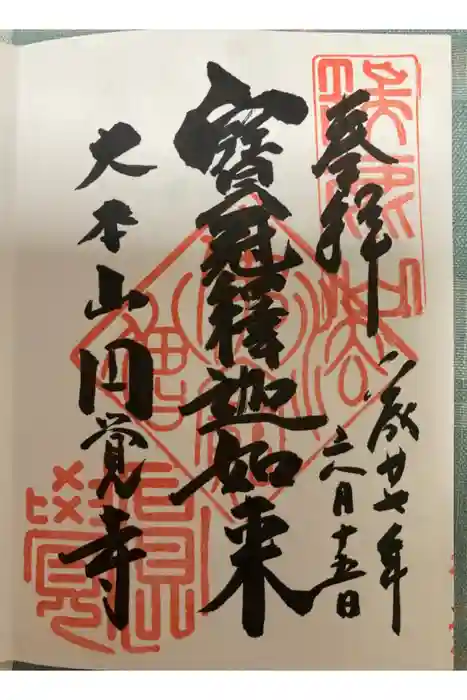 奉拝
平成廿七年
六月十五日
寶冠釋迦如来
大本山円覚寺